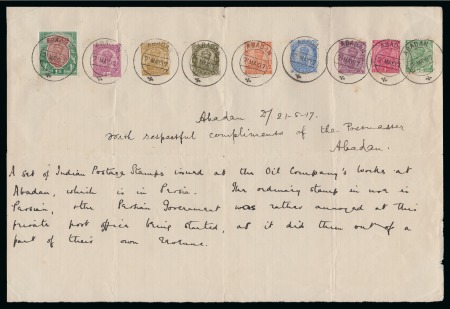 ABADAN
Abadan D/ 21-5-17.
With respectful compliments of the Postmaster
Abadan.
A set of Indian Postage Stamps issued at the Oil Company's works at
Abadan, which is in Persia. The ordinary stamp in use is
Persian, the Persian Government was rather annoyed at this
private post office being started, as it did them out of a
part of their own revenue.